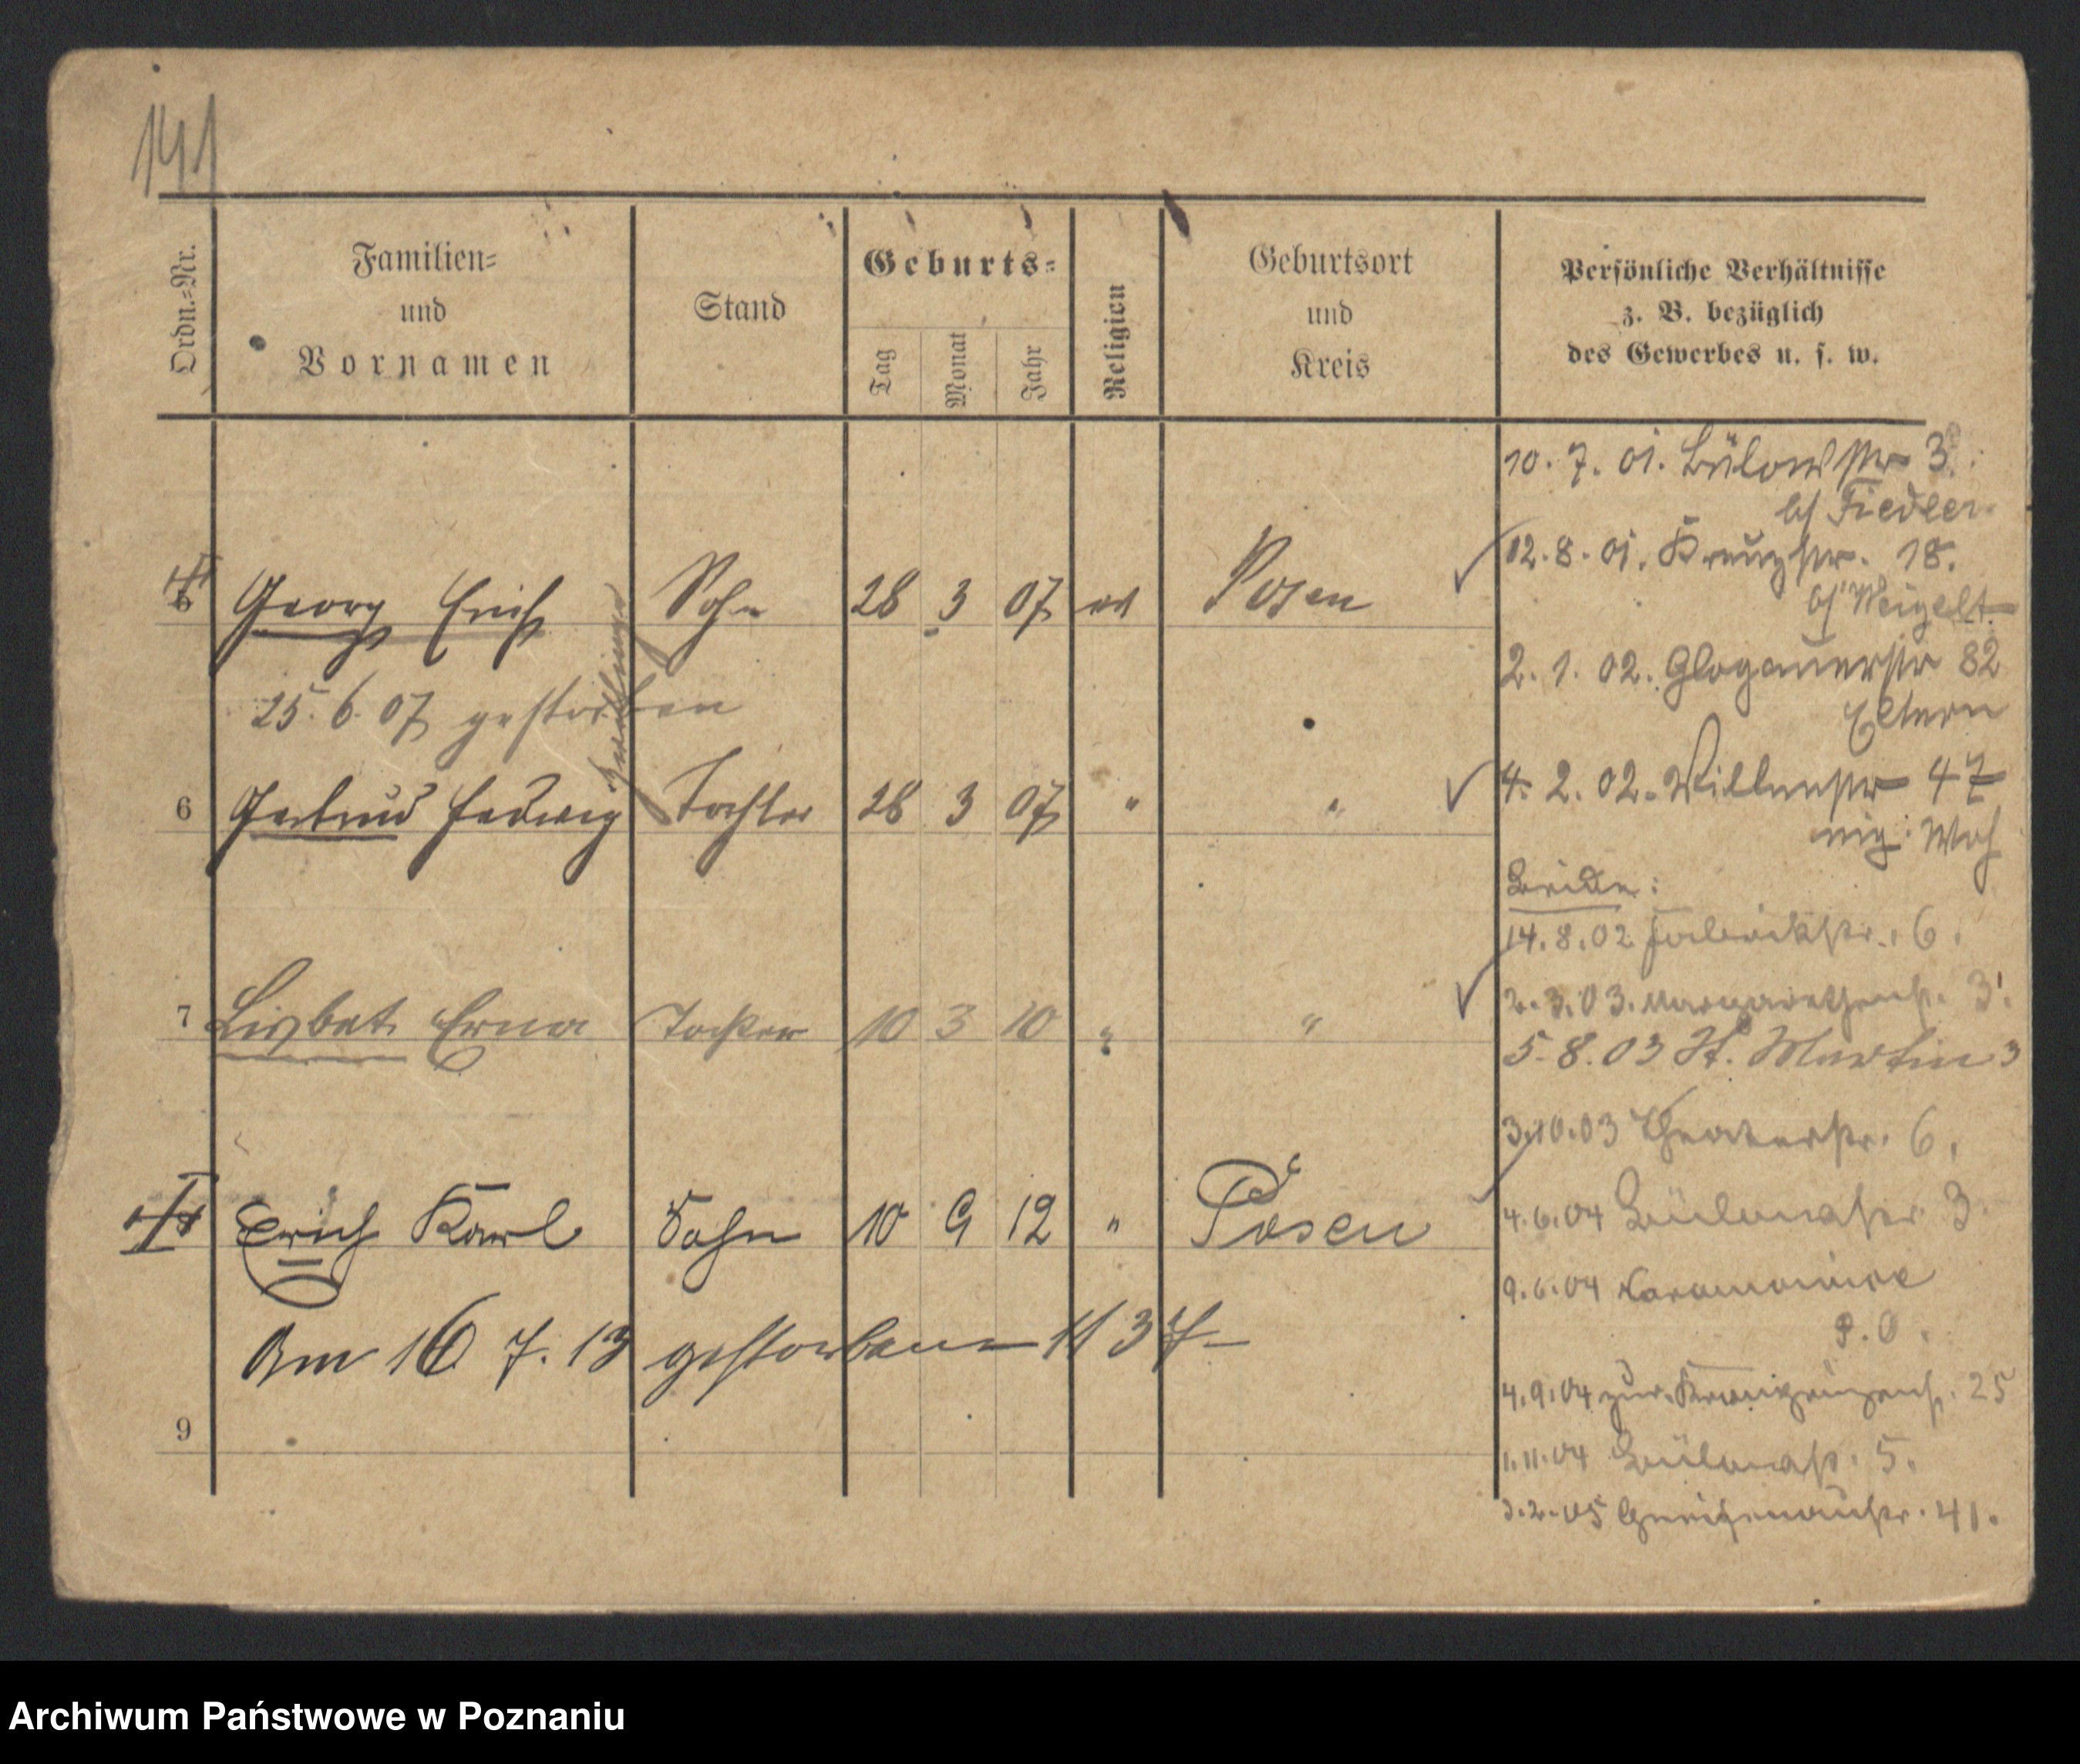 141
Ordn.-Nr.
Familien-
und
Vornamen
Stand
Geburts-
Tag
Monat
Jahr
Religion
Geburtsort
und
Kreis
Persönliche Verhältnisse
z. B. bezüglich
des Gewerbes u. s. w.
10. 7. 01. Bülowstr 3.
b/ Fiedler
5 Georg Erich Sohn 28 3 07 ev Posen
12. 8. 01. Kreuzstr. 18.
b/ Weigelt
25. 6. 07 gestorben
Zwillinge
2. 1. 02. Glogauerstr 82
Eltern
6 Gertrud Hedwig Tochter 28 3 07 " "
4. 2. 02. 47
eig: Woh
Beide:
14. 8. 02 Fabrikstr. 6.
7 Lisbet Erna Tochter 10 3 10 " "
2. 3. 03. Margarethenst. 3.
5. 8. 03 St. Martin 3
3. 10. 03 Theaterstr. 6.
Erich Karl Sohn 10 9 12 " Posen
4. 6. 04 3.
9. 6. 04
P. O.
Am 16 7. 13 gestorben 1137
4. 9. 04 zur. 25
9
1. 11. 04 5.
3. 2. 05 Gneisenaustr. 41.
Archiwum Państwowe w Poznaniu